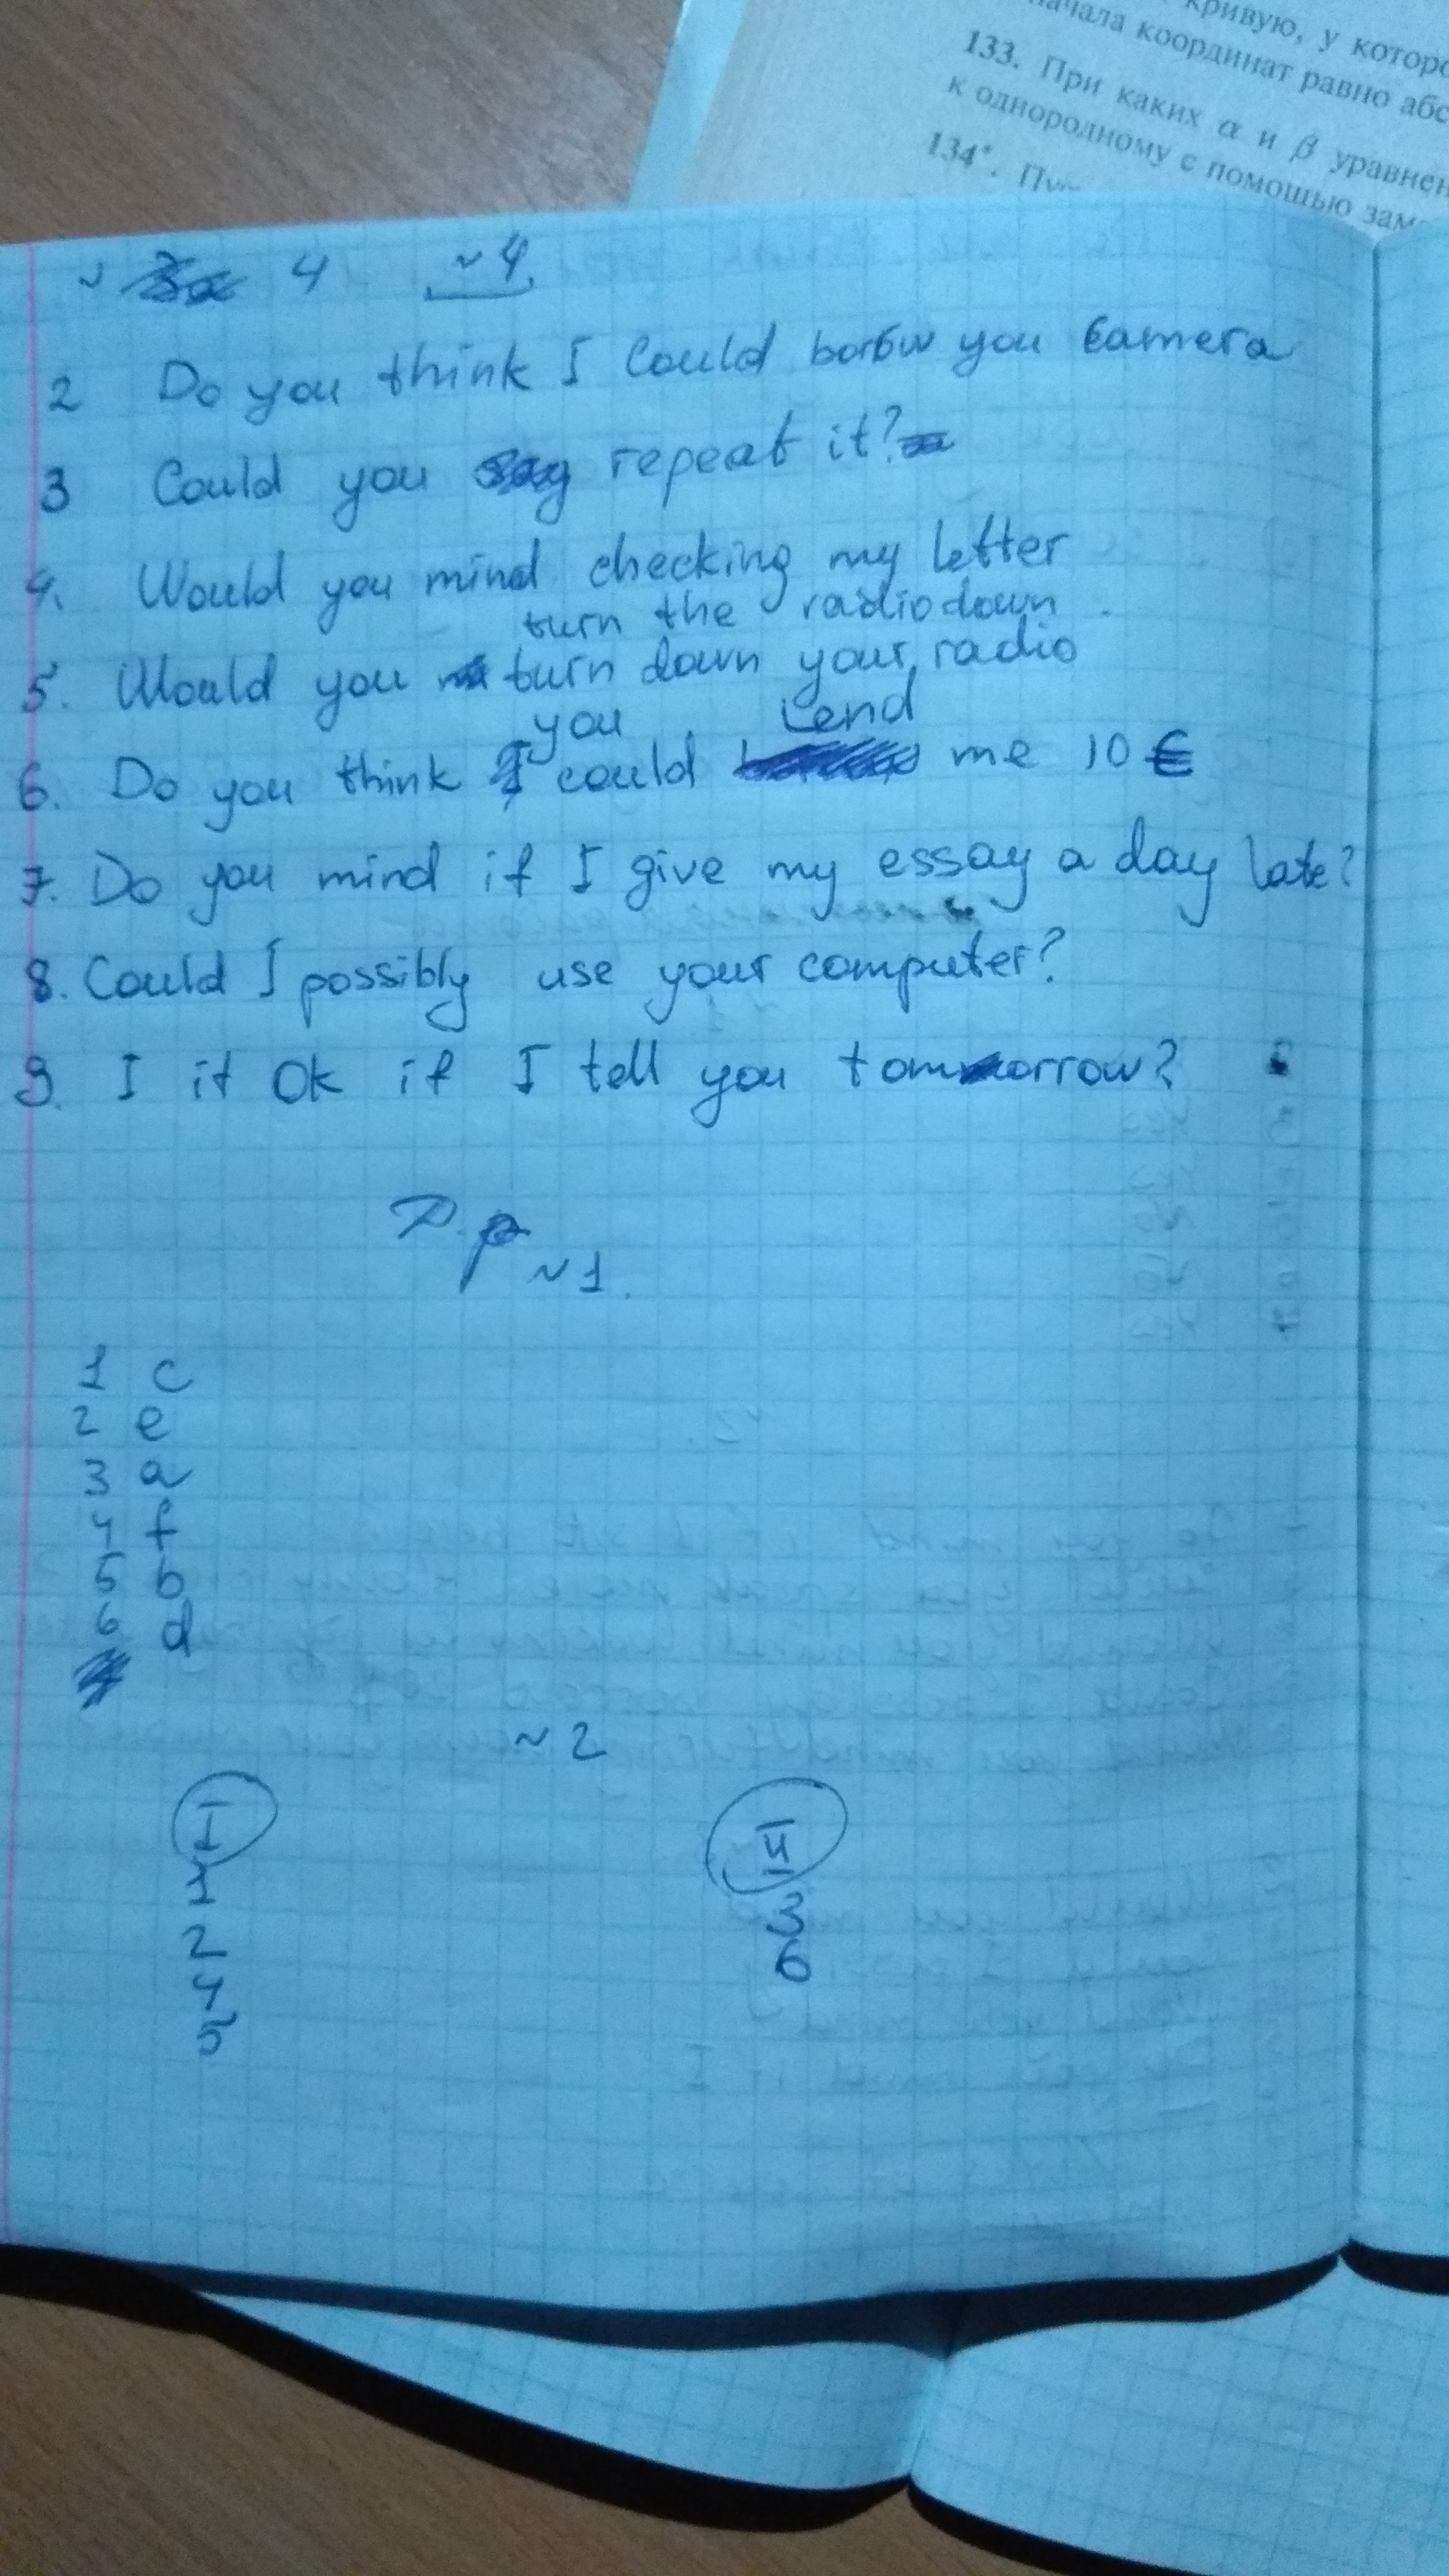 кривую, у которо
начала координат равно абс
133. При каких α и β уравнен
к однородному с помощью зам
134*.
4 ~4.
2 Do you think I Could borow you camera
3 Could you repeat it?
4. Would you mind checking my letter
turn the radio down
5. Would you turn down your radio
you Lend
6. Do you think could me 10 €
7. Do you mind if I give my essay a day late?
8. Could I possibly use your computer?
9. I it Ok if I tell you tomorrow?
~1.
1 c
2 e
3 a
4 f
5 b
6 d
~2
I II
1 3
2 6
4
5